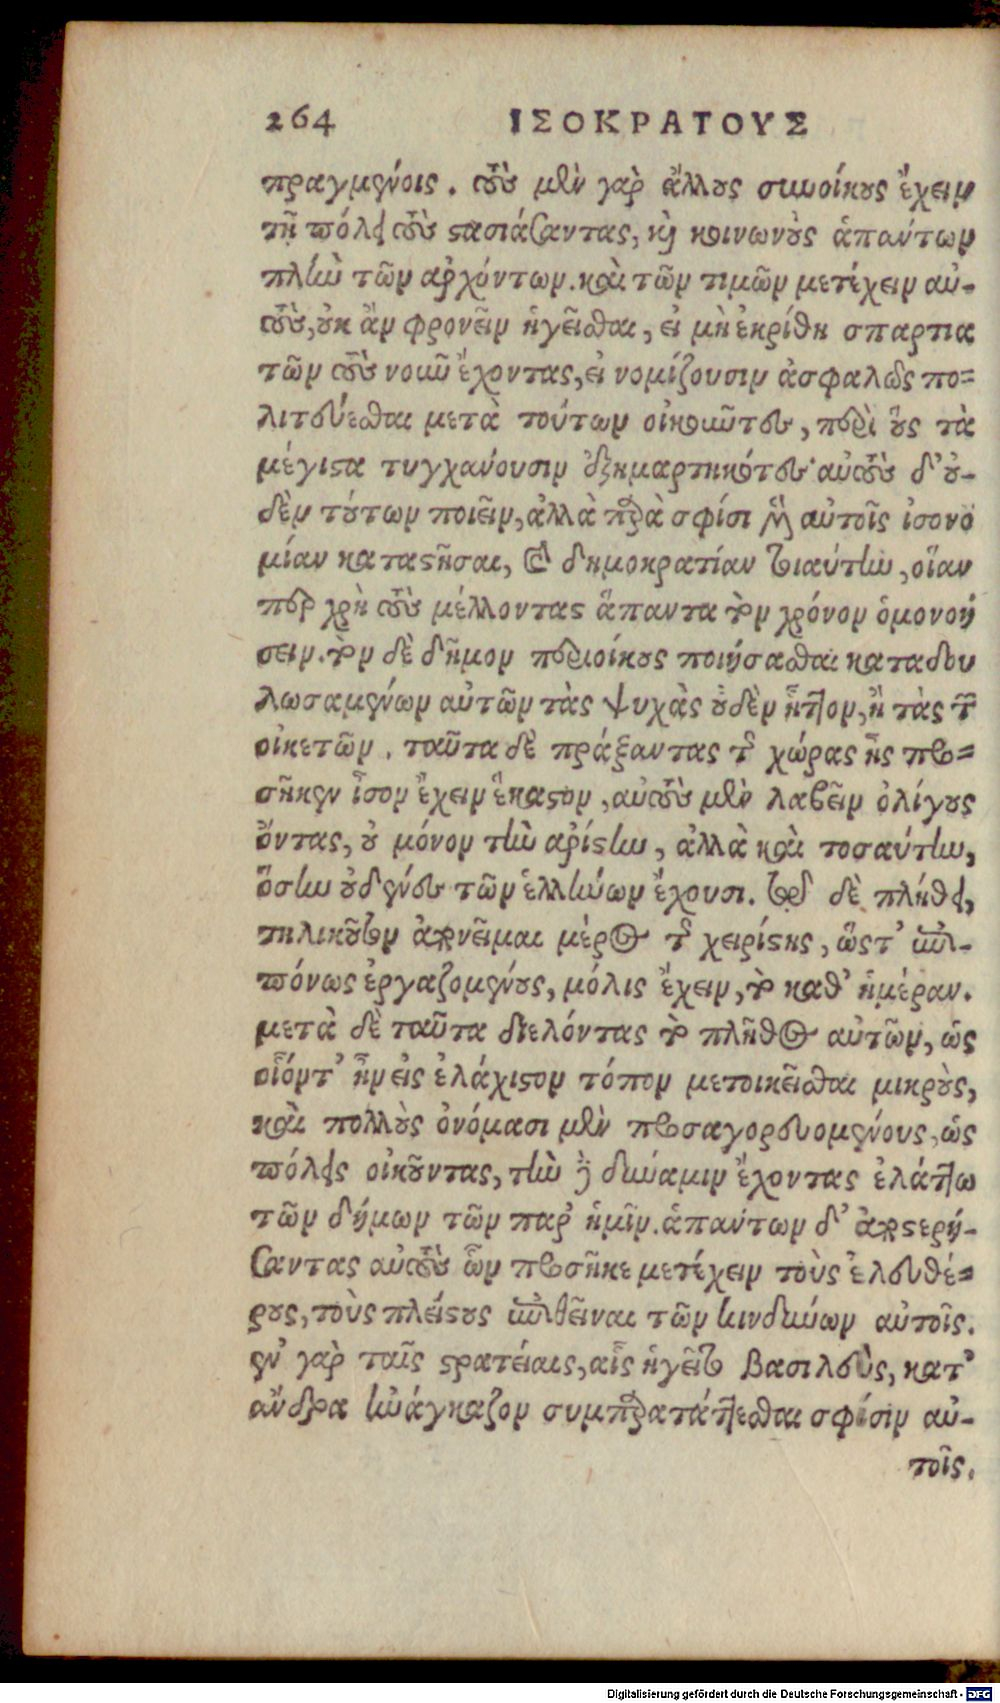 264 ΙΣΟΚΡΑΤΟΥΣ
πραγμένοις. τοὺς μὲν γὰρ ἄλλους συνοίκους ἔχειν
τῇ πόλει τοὺς στασιάσαντας, καὶ κοινωνοὺς ἁπάντων
πλὴν τῶν ἀρχόντων. καὶ τῶν τιμῶν μετέχειν αὐ-
τοὺς, οὐκ ἂν φρονεῖν ἡγεῖσθαι, εἰ μὴ ἐκρίθη σπαρτια
τῶν τοὺς νοῦν ἔχοντας, εἰ νομίζουσιν ἀσφαλῶς πο=
λιτεύεσθαι μετὰ τούτων οἰκοῦντες, περὶ οὓς τὰ
μέγιστα τυγχάνουσιν ἐξημαρτηκότες· αὐτοὺς δ' οὐ-
δὲν τούτων ποιεῖν, ἀλλὰ παρὰ σφίσι μὲν αὐτοῖς ἰσονο
μίαν καταστῆσαι, καὶ δημοκρατίαν τοιαύτην, οἵαν
περ χρὴ τοὺς μέλλοντας ἅπαντα τὸν χρόνον ὁμονοή
σειν. τὸν δὲ δῆμον περιοίκους ποιήσασθαι καταδου
λωσαμένων αὐτῶν τὰς ψυχὰς οὐδὲν ἧττον, ἢ τὰς τῶν
οἰκετῶν. ταῦτα δὲ πράξαντας τῆς χώρας ἧς προ=
σῆκεν ἴσον ἔχειν ἕκαστον, αὐτοὺς μὲν λαβεῖν ὀλίγους
ὄντας, οὐ μόνον τὴν ἀρίστην, ἀλλὰ καὶ τοσαύτην,
ὅσην οὐδένες τῶν ἑλλήνων ἔχουσι. τῷ δὲ πλήθει,
τηλικοῦτον ἀπονεῖμαι μέρος τῆς χειρίστης, ὥστ' ἐπι-
πόνως ἐργαζομένους, μόλις ἔχειν, τὸ καθ' ἡμέραν.
μετὰ δὲ ταῦτα διελόντας τὸ πλῆθος αὐτῶν, ὡς
οἷόντ' ἦν εἰς ἐλάχιστον τόπον μετοικεῖσθαι μικροὺς,
καὶ πολλοὺς ὀνόμασι μὲν προσαγορευομένους, ὡς
πόλεις οἰκοῦντας, τὴν δὲ δύναμιν ἔχοντας ἐλάττω
τῶν δήμων τῶν παρ' ἡμῖν. ἁπάντων δ' ἀποστερή-
σαντας αὐτοὺς ὧν προσῆκε μετέχειν τοὺς ἐλευθέ=
ρους, τοὺς πλείστους ἐπιθεῖναι τῶν κινδύνων αὐτοῖς.
ἐν γὰρ ταῖς στρατείαις, αἷς ἡγεῖτο βασιλεὺς, κατ'
ἄνδρα ἠνάγκαζον συμπαρατάττεσθαι σφίσιν αὐ-
τοῖς.
Digitalisierung gefördert durch die Deutsche Forschungsgemeinschaft - DFG